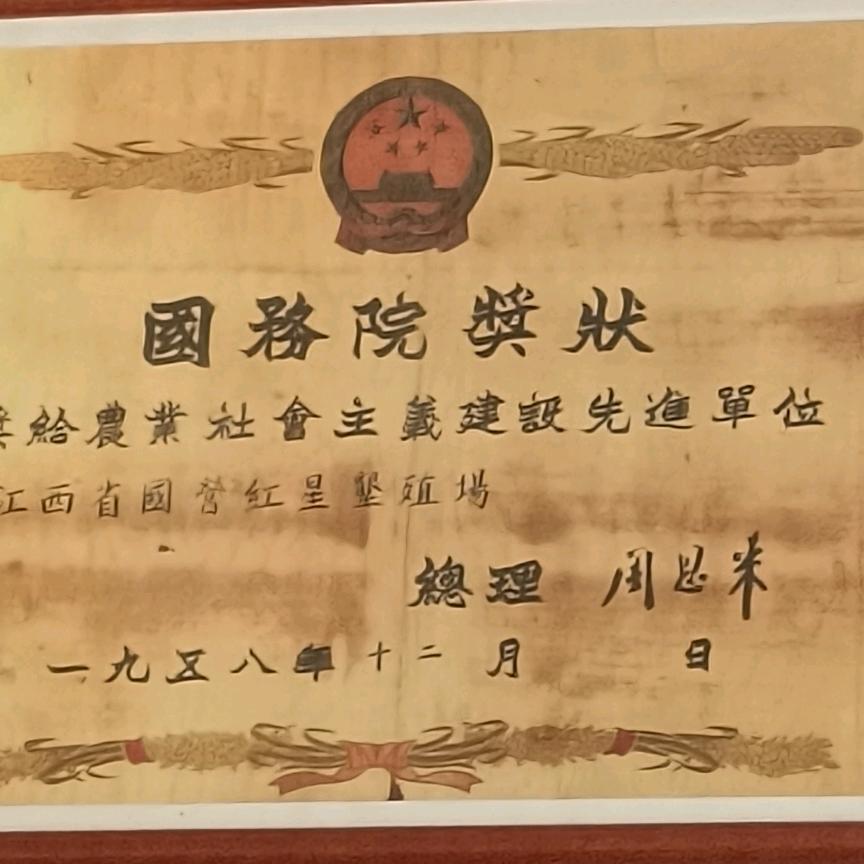 國務院獎狀
獎給農業社會主義建設先進單位
江西省國营紅星墾殖場
總理 周恩来
一九五八年十二月 日